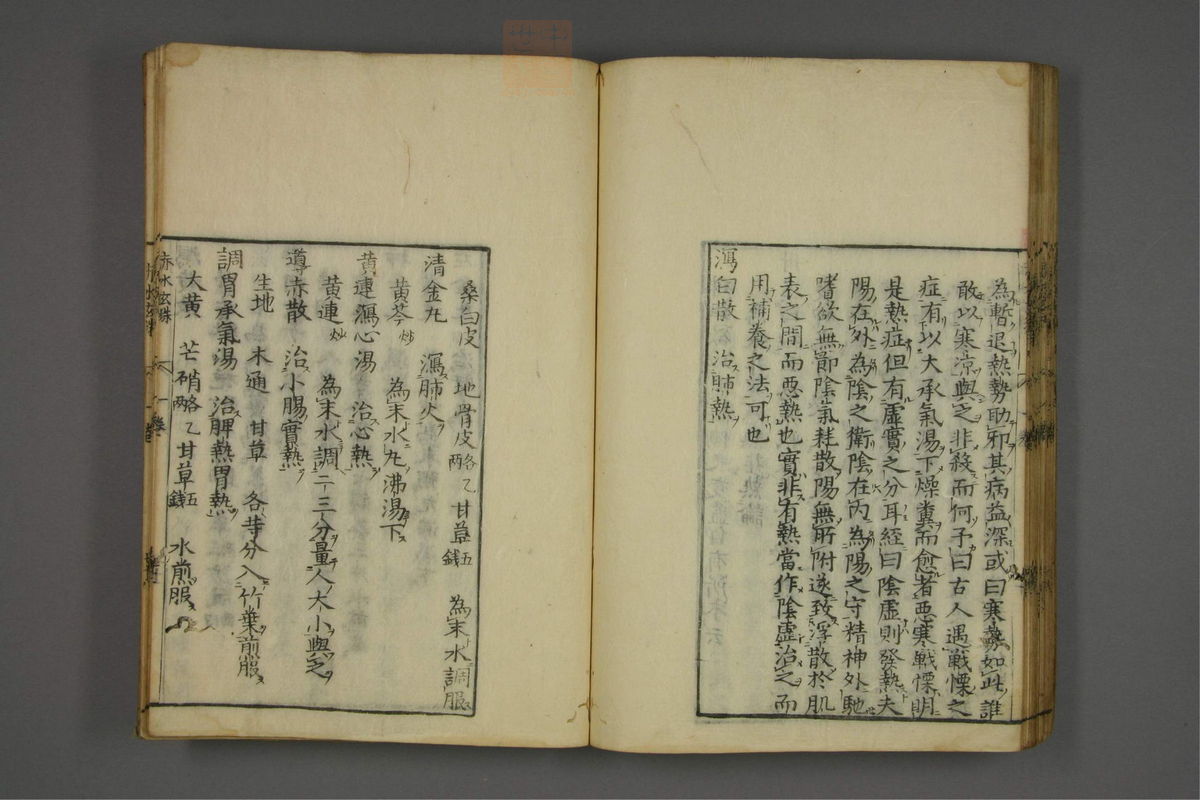 為暫退熱勢助邪其病益深或曰寒勢如此誰
敢以寒涼與之非殺而何予曰古人遇戰慄之
症有以大承氣湯下燥糞而愈者惡寒戰慄明
是熱症但有虛實之分耳經曰陰虛則發熱夫
陽在外為陰之衛陰在內為陽之守精神外馳
嗜欲無節陰氣耗散陽無所附遂致浮散於肌
表之間而惡熱也實非有熱當作陰虛治之而
用補養之法可也
瀉白散 治肺熱
桑白皮 地骨皮各乙兩 甘草五錢 為末水調服
清金丸 瀉肺火
黃芩炒 為末水丸沸湯下
黃連瀉心湯 治心熱
黃連炒 為末水調二三分量人大小與之
導赤散 治小腸實熱
生地 木通 甘草 各等分入竹葉煎服
調胃承氣湯 治脾熱胃熱
大黃 芒硝各乙兩 甘草五錢 水煎服
赤水玄珠